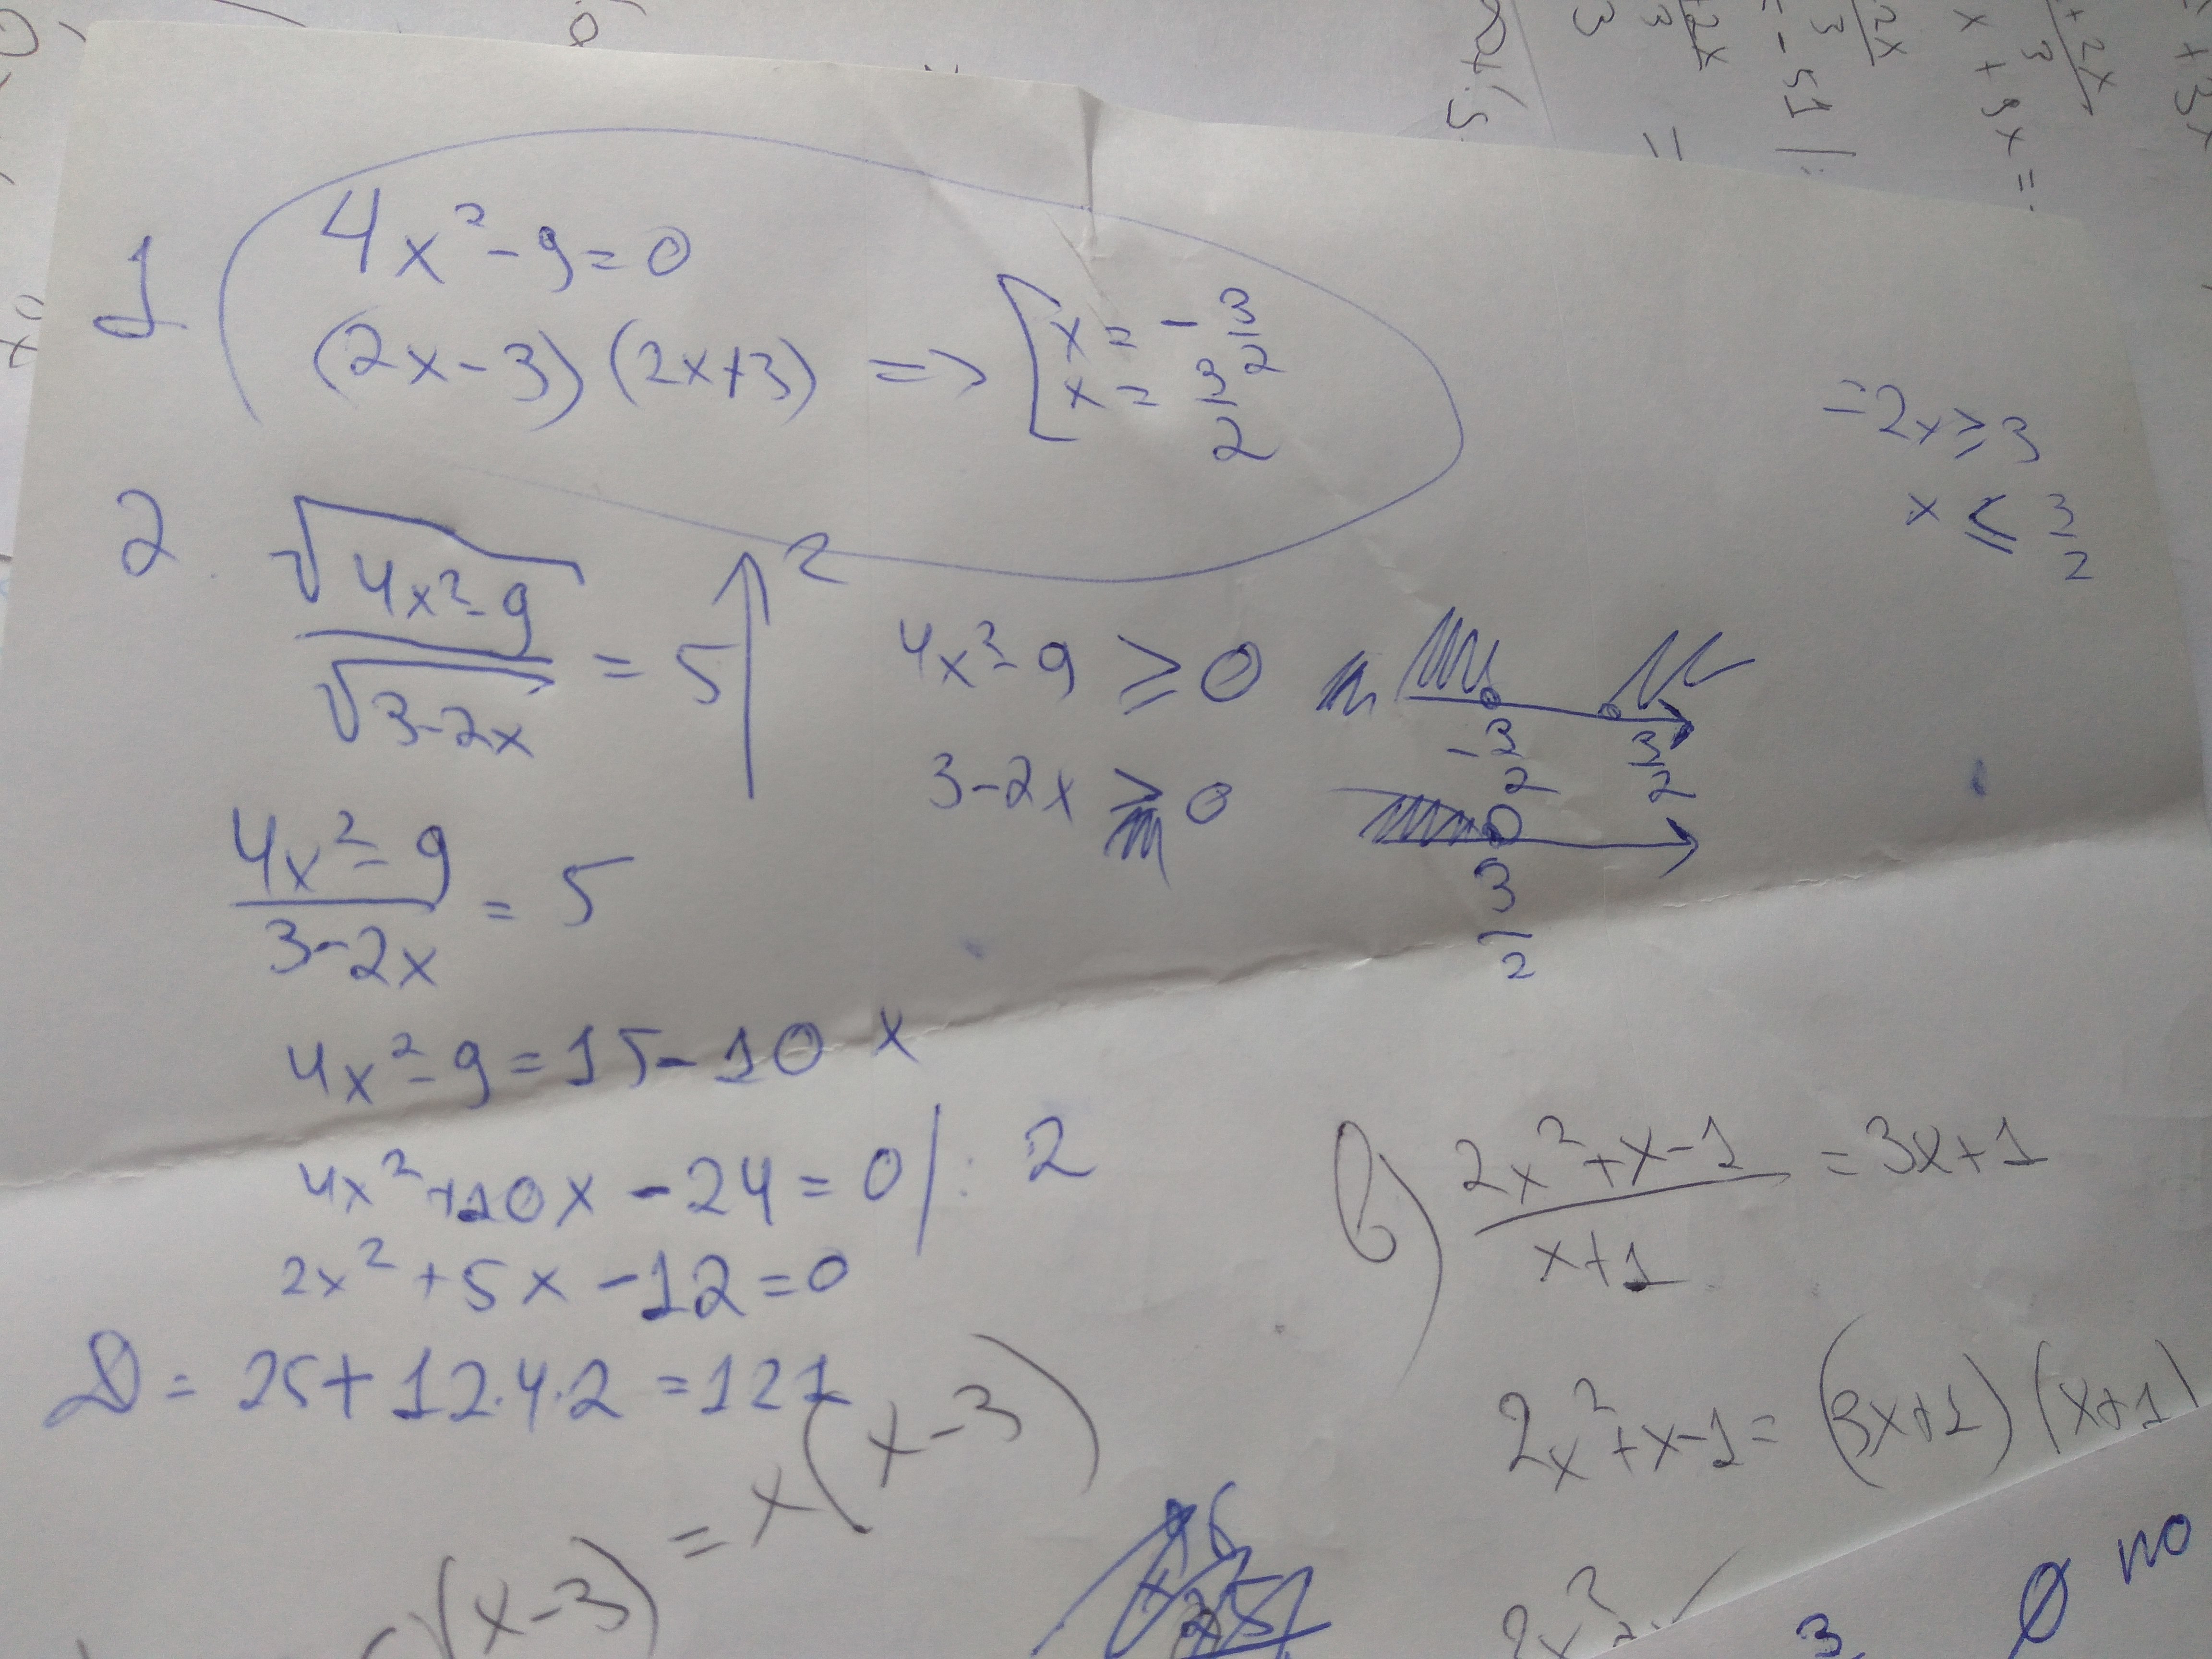 1 4x² - 9 = 0
(2x-3)(2x+3) => [ x = - 3/2
x = 3/2
-2x ≥ 3
x ≤ 3/2
2. √(4x²-9) / √(3-2x) = 5 ↑²
4x²-9 ≥ 0
-3/2 3/2
3-2x ≥ 0
3/2
(4x²-9)/(3-2x) = 5
4x²-9 = 15-10x
4x²+10x-24=0 |:2
2x²+5x-12=0
D = 25+12·4·2 = 121
(x-3) = x(x-3)
В) (2x²+x-1)/(x+1) = 3x+1
2x²+x-1 = (3x+1)(x+1)
2x²
3
Ø по